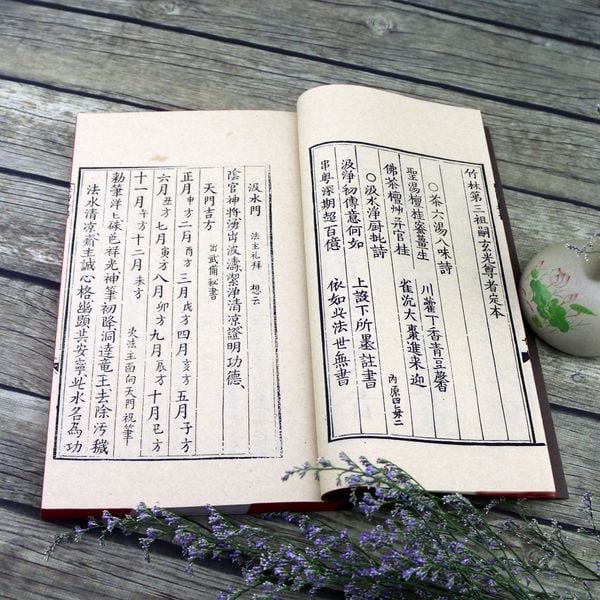 竹林第三祖嗣玄光尊者定本
○茶六湯八味詩
聖湯檀桂蜜薑生 川藿丁香青豆馨
佛茶檀艸三官桂 雀沉大棗進来迎 內原四每二
○汲水淨厨批詩
汲淨初傳意何如 上設下所墨註書
串粤深期超百億 依如此法世無書
汲水門 法主礼拜 想云
陰官神將湧出波濤潔淨清凉證明功德、
天門吉方 出武備秘書
正月申方二月酉方三月戌方四月亥方五月子方
六月丑方七月寅方八月卯方九月辰方十月巳方
十一月午方十二月未方 次法主面向天門祝筆
勅筆洋上硃色祥光神筆初降洞達竜王去除汚穢
法水清凉齋主誠心格幽顕共安寧此水名為功